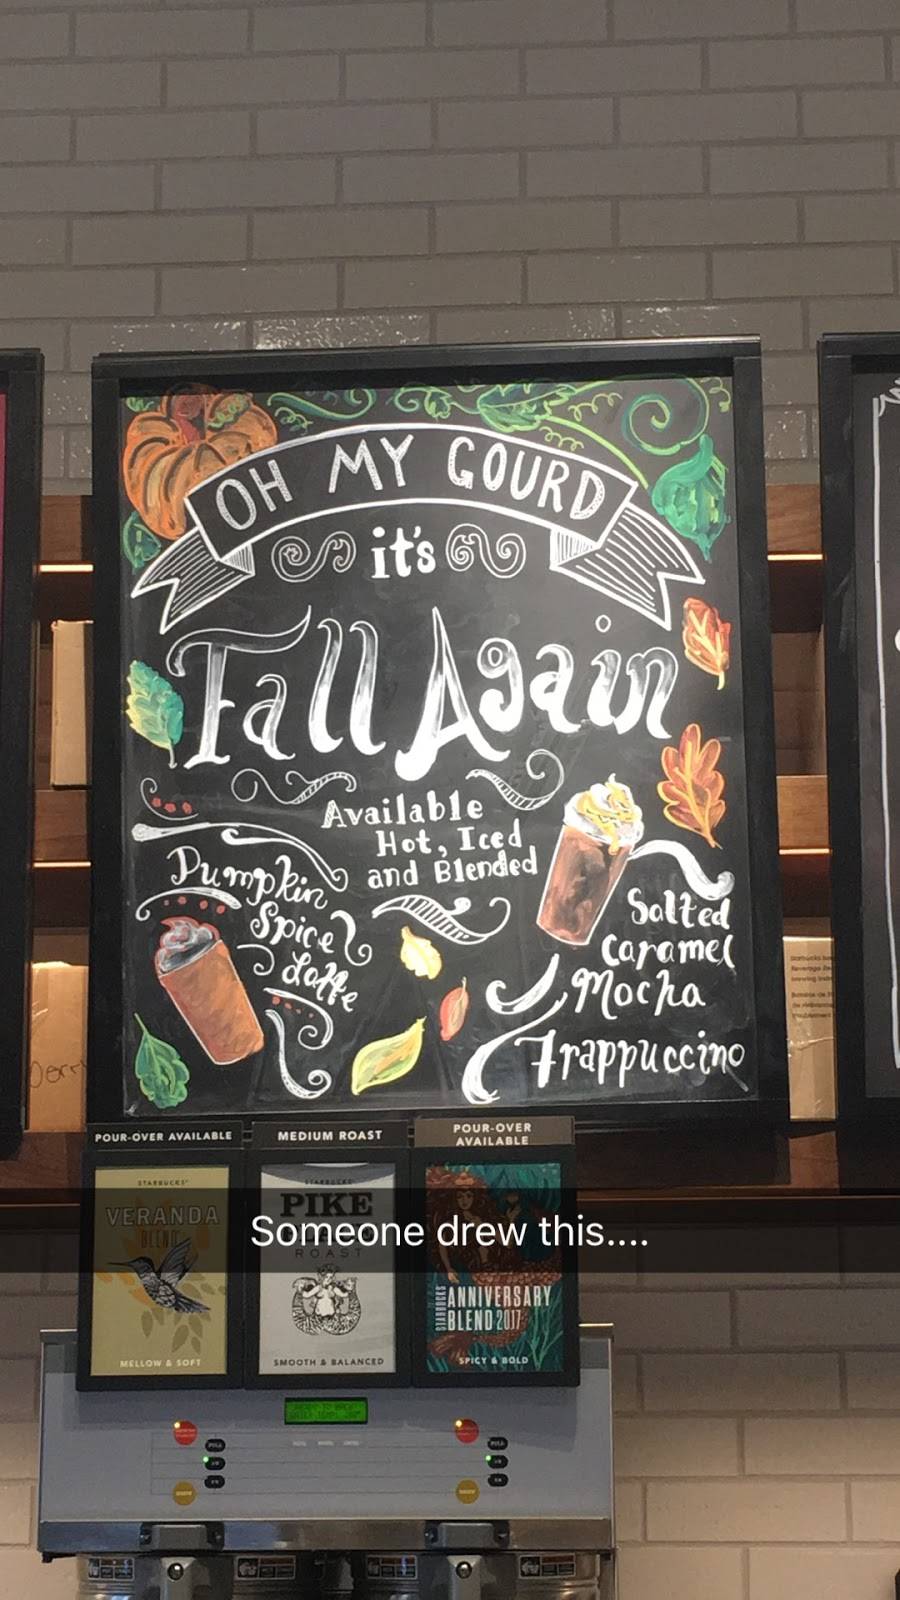 OH MY GOURD
it's
Fall Again
Available
Hot, Iced
and Blended
Pumpkin
Spice
Latte
Salted
Caramel
Mocha
Frappuccino
POUR-OVER AVAILABLE
STARBUCKS
VERANDA
BLEND
MELLOW & SOFT
MEDIUM ROAST
PIKE
ROAST
SMOOTH & BALANCED
POUR-OVER
AVAILABLE
STARBUCKS
ANNIVERSARY
BLEND 2017
SPICY & BOLD
Someone drew this....